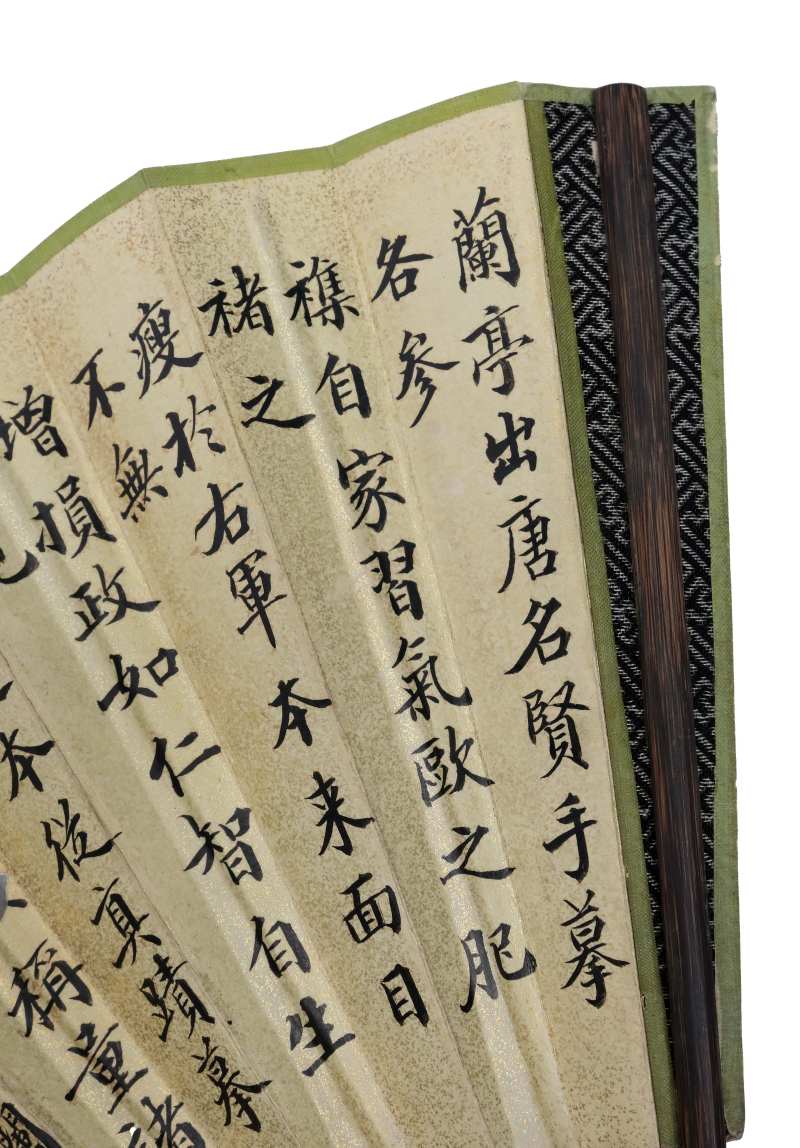 蘭亭出唐名賢手摹
各參
襍自家習氣歐之肥
褚之
瘦於右軍本来面目
不無
增損政如仁智自生
本從真蹟摹
稱量諸